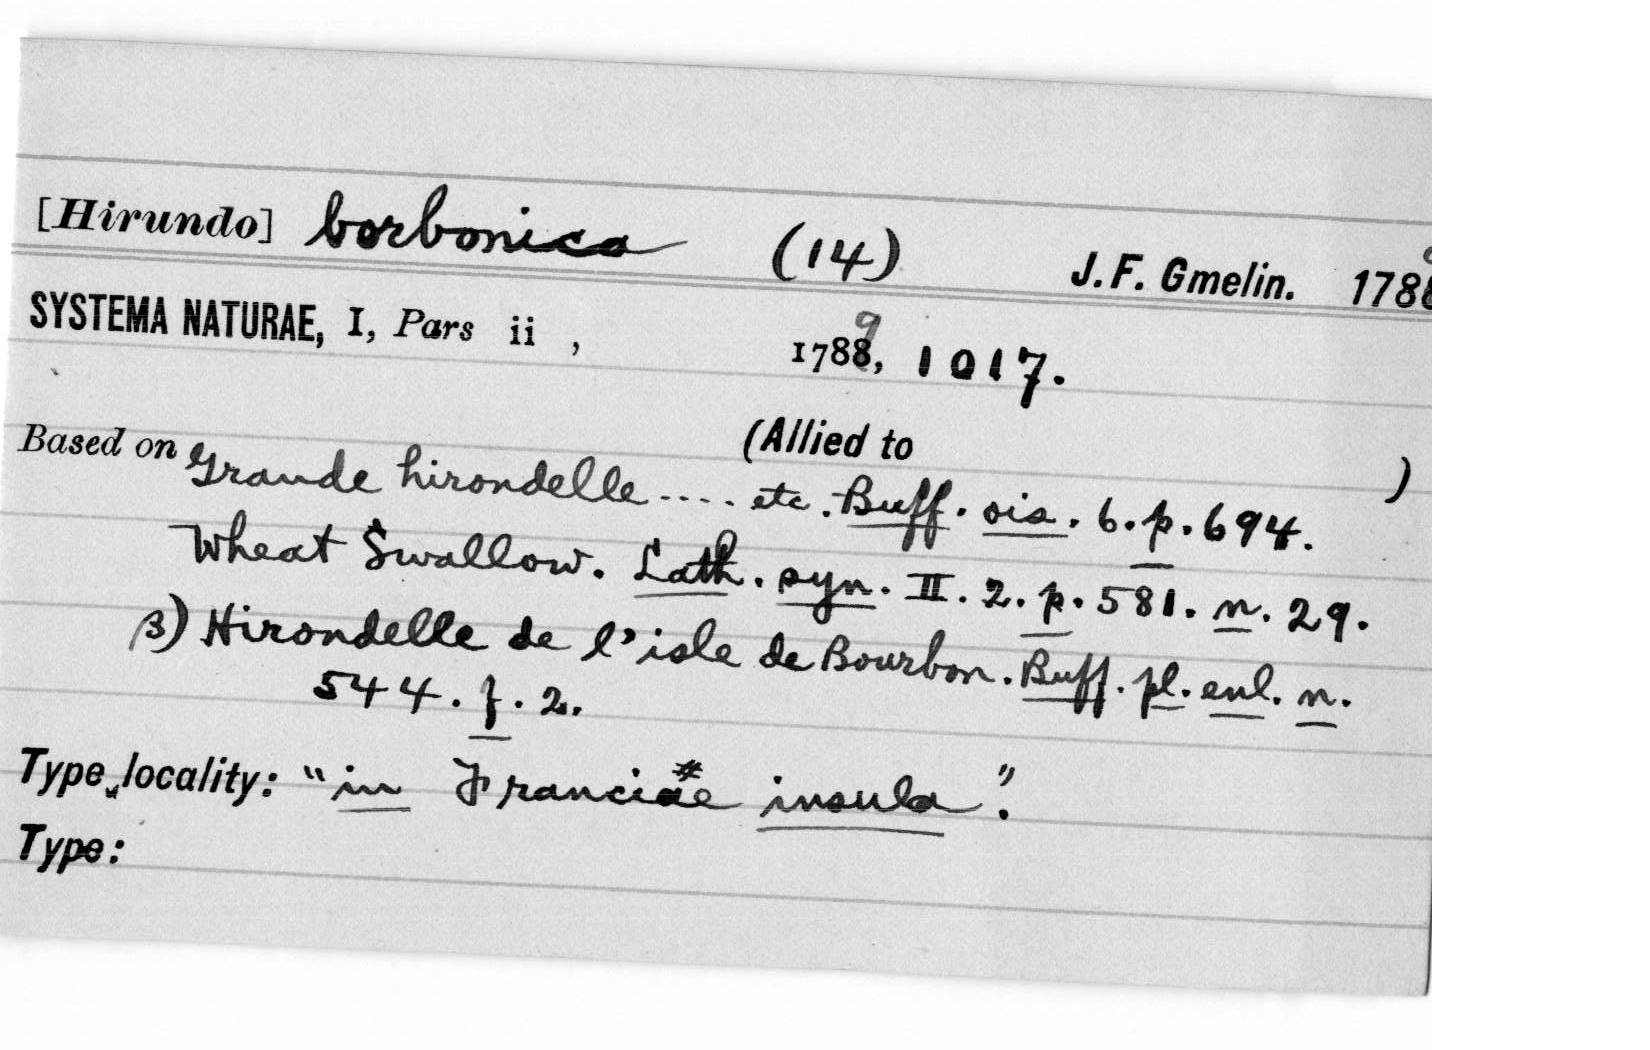 [Hirundo] borbonica (14) J. F. Gmelin. 1788
SYSTEMA NATURAE, I, Pars ii , 17889, 1017.
(Allied to )
Based on Grande hirondelle .... etc. Buff. ois. 6. p. 694.
Wheat Swallow. Lath. syn. II. 2. p. 581. n. 29.
β) Hirondelle de l'isle de Bourbon. Buff. pl. enl. n.
544. f. 2.
Type locality: "in Franciae insula".
Type: